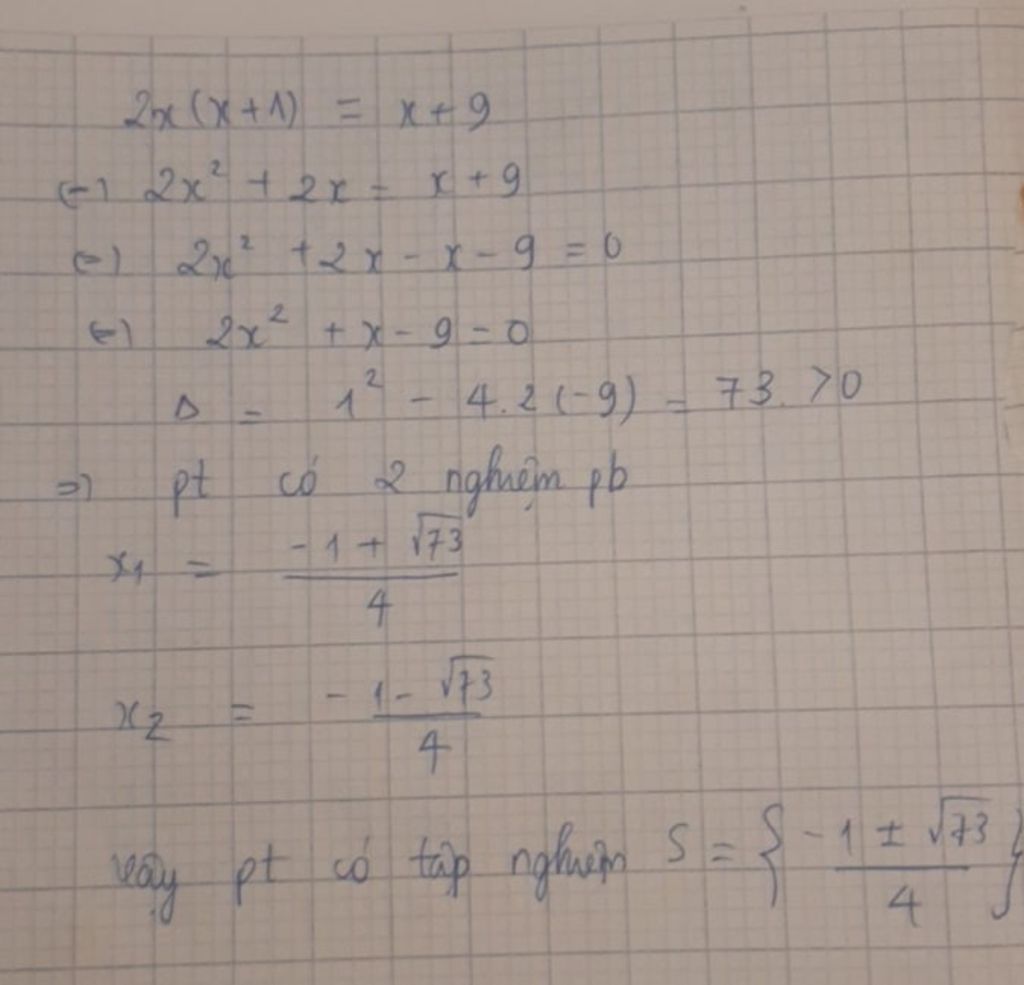 2x(x+1) = x+9
(=) 2x² + 2x = x + 9
(=) 2x² + 2x - x - 9 = 0
(=) 2x² + x - 9 = 0
Δ = 1² - 4.2(-9) = 73 > 0
=) pt có 2 nghiệm pb
x₁ = (-1 + √73)/4
x₂ = (-1 - √73)/4
vậy pt có tập nghiệm S = {(-1 ± √73)/4}